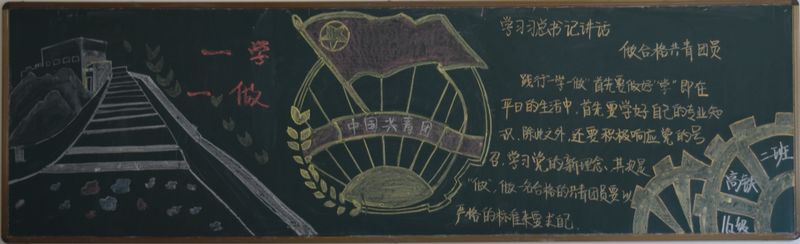 一学
一做
中国共青团
学习习总书记讲话
做合格共青团员
践行“一学一做”首先要做好“学”即在
平日的生活中,首先要学好自己的专业知
识,除此之外,还要积极响应党的号
召,学习党的新理念,其次是
“做”,做一名合格的共青团员要以
严格的标准来要求自己.
二班
高铁
16级